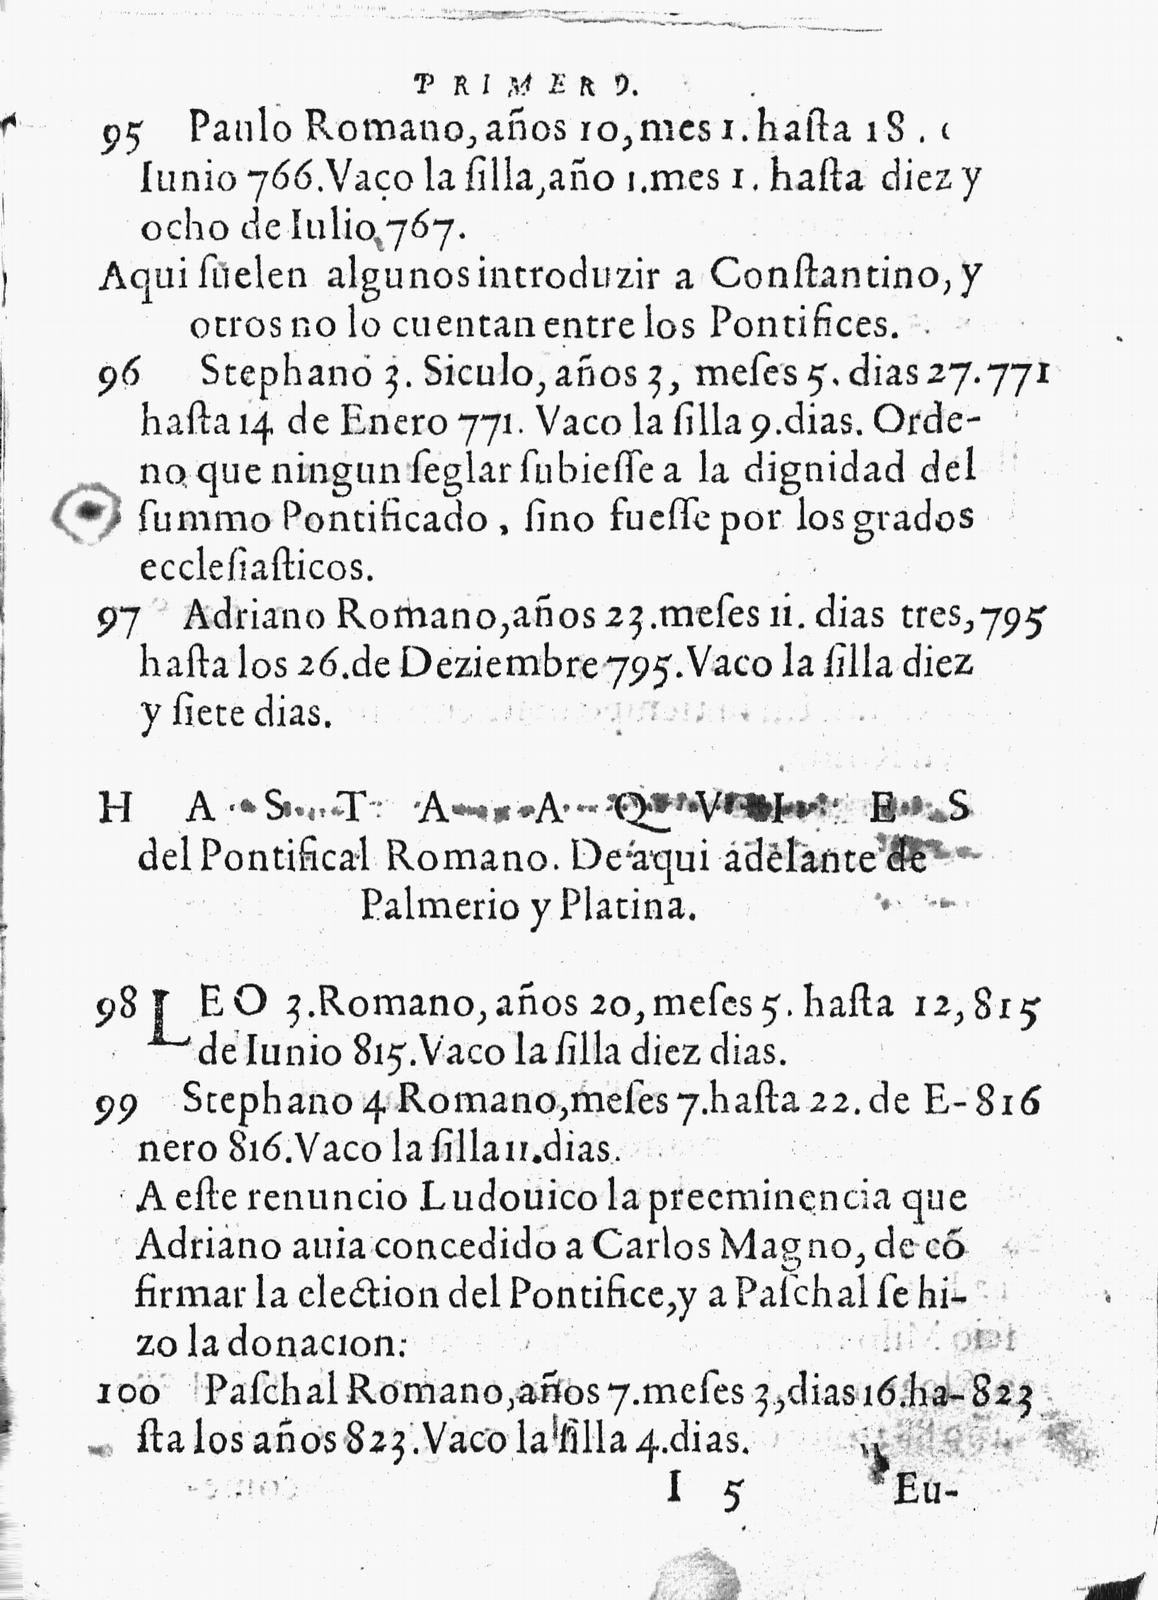 PRIMERO.
95 Paulo Romano, años 10, mes 1. haſta 18.
Iunio 766. Vaco la ſilla, año 1. mes 1. haſta diez y
ocho de Iulio, 767.
Aqui ſuelen algunos introduzir a Conſtantino, y
otros no lo cuentan entre los Pontifices.
96 Stephano 3. Siculo, años 3, meſes 5. dias 27. 771
haſta 14 de Enero 771. Vaco la ſilla 9. dias. Orde-
no que ningun ſeglar ſubieſſe a la dignidad del
ſummo Pontificado, ſino fueſſe por los grados
eccleſiaſticos.
97 Adriano Romano, años 23. meſes 11. dias tres, 795
haſta los 26. de Deziembre 795. Vaco la ſilla diez
y ſiete dias.
HASTA AQVI ES
del Pontifical Romano. De aqui adelante de
Palmerio y Platina.
98 LEO 3. Romano, años 20, meſes 5. haſta 12, 815
de Iunio 815. Vaco la ſilla diez dias.
99 Stephano 4 Romano, meſes 7. haſta 22. de E- 816
nero 816. Vaco la ſilla 11. dias.
A eſte renuncio Ludouico la preeminencia que
Adriano auia concedido a Carlos Magno, de cõ
firmar la election del Pontifice, y a Paſchal ſe hi-
zo la donacion:
100 Paſchal Romano, años 7. meſes 3, dias 16. ha- 823
ſta los años 823. Vaco la ſilla 4. dias.
I 5 Eu-